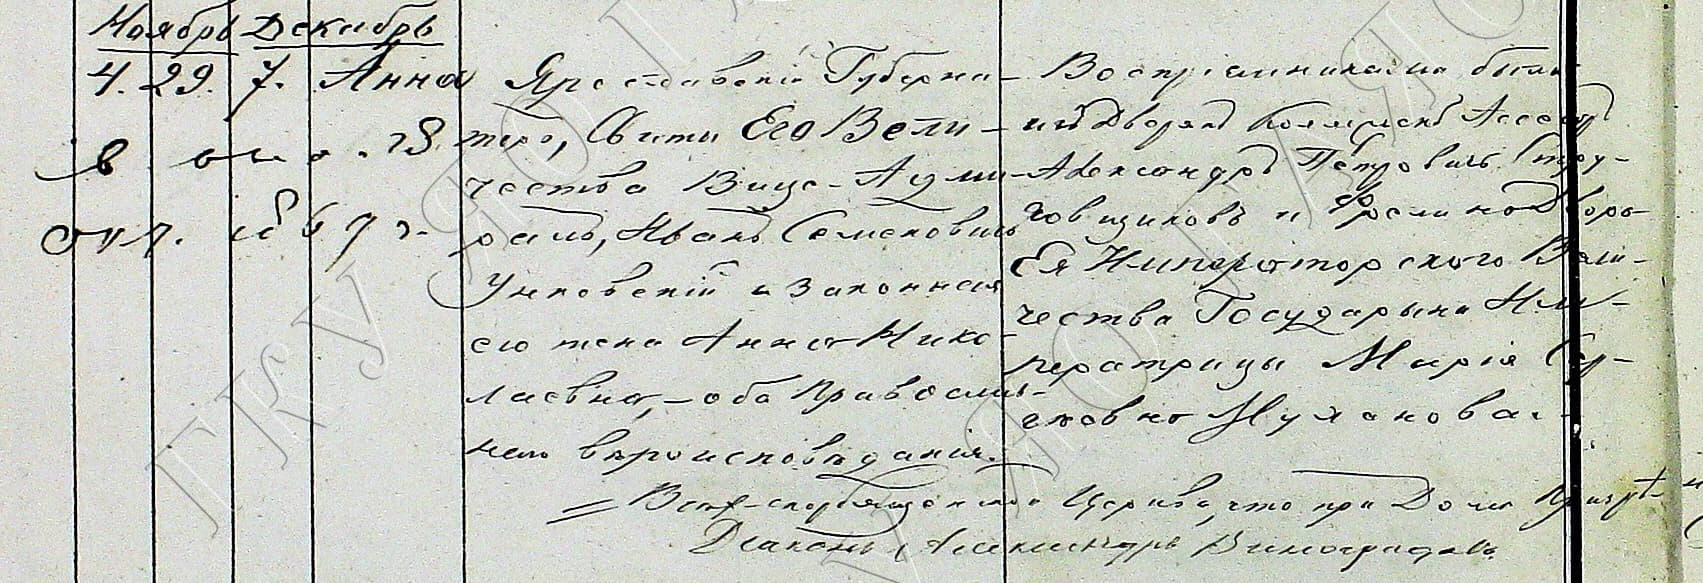 Ноябрь Декабрь
4. 29. 7. Анна
Ярославский Губерна-
торъ, Свиты Его Вели-
чества Вице-Адми-
ралъ, Иванъ Семеновичъ
Унковскій и законная
его жена Анна Нико-
лаевна, - оба Православ-
наго вѣроисповѣданія.
Воспріемниками были
Дворян Коллежск Ассесор
Александръ Петровичъ Стру-
говщиковъ и Фрелина Двора
Ея Императорского Вели-
чества Государыни Им-
ператрицы Марія Сер-
геевна Муханова.
= Всех-скорбященской Церкви, что при Доме Призрѣ-
Діаконъ, Александръ Виноградовъ.